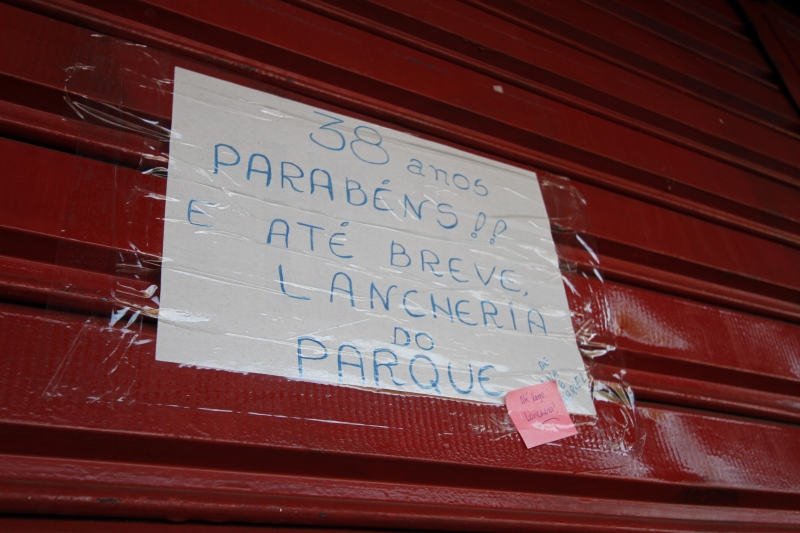 38 anos
PARABÉNS!!
E ATÉ BREVE,
LANCHERIA
DO
PARQUE